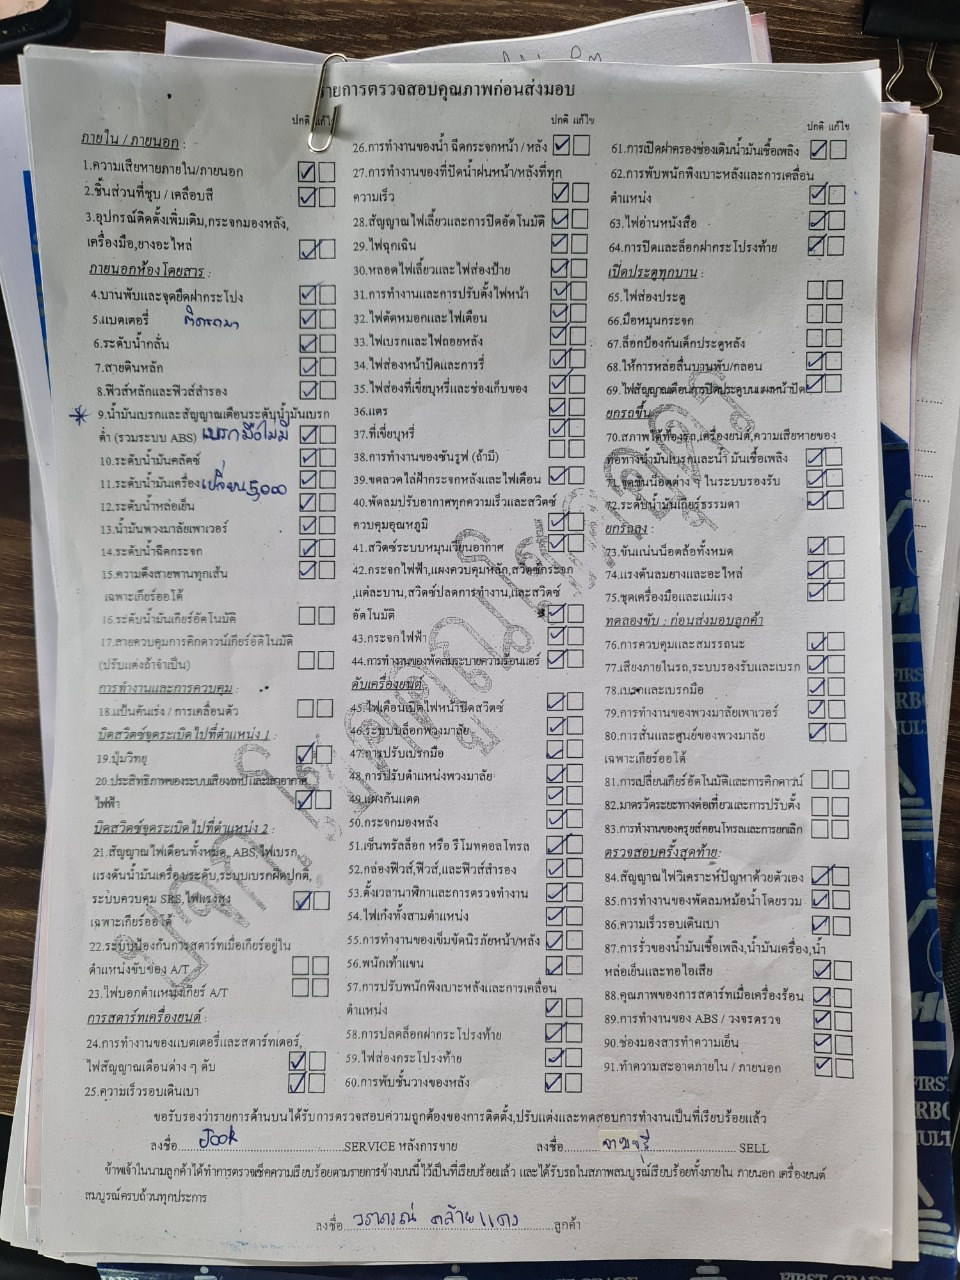 รายการตรวจสอบคุณภาพก่อนส่งมอบ
ปกติ แก้ไข
ภายใน / ภายนอก :
1.ความเสียหายภายใน/ภายนอก
2.ชิ้นส่วนที่ชุบ / เคลือบสี
3.อุปกรณ์ติดตั้งเพิ่มเติม,กระจกมองหลัง,
เครื่องมือ,ยางอะไหล่
ภายนอกห้องโดยสาร :
4.บานพับและจุดยึดฝากระโปง
5.แบตเตอรี่
6.ระดับน้ำกลั่น
7.สายดินหลัก
8.ฟิวส์หลักและฟิวส์สำรอง
9.น้ำมันเบรกและสัญญาณเตือนระดับน้ำมันเบรก
ต่ำ (รวมระบบ ABS) เบรกมือไม่มี
10.ระดับน้ำมันคลัตช์
11.ระดับน้ำมันเครื่อง เปลี่ยน 5,000
12.ระดับน้ำหล่อเย็น
13.น้ำมันพวงมาลัยเพาเวอร์
14.ระดับน้ำฉีดกระจก
15.ความตึงสายพานทุกเส้น
เฉพาะเกียร์ออโต้
16.ระดับน้ำมันเกียร์อัตโนมัติ
17.สายควบคุมการคิกดาวน์เกียร์อัติโนมัติ
(ปรับแต่งถ้าจำเป็น)
การทำงานและการควบคุม :
18.แป้นคันเร่ง / การเคลื่อนตัว
บิดสวิตช์จุดระเบิดไปที่ตำแหน่ง 1 :
19.ปุ่มวิทยุ
20.ประสิทธิภาพของระบบเสียงเทปและเสาอากาศ
ไฟฟ้า
บิดสวิตซ์จุดระเบิดไปที่ตำแหน่ง 2 :
21.สัญญาณไฟเตือนทั้งหมด, ABS,ไฟเบรก,
แรงดันน้ำมันเครื่องระดับ,ระบบเบรกผิดปกติ,
ระบบควบคุม SRS,ไฟแรงสูง
เฉพาะเกียร์ออโต้
22.ระบบป้องกันการสตาร์ทเมื่อเกียร์อยู่ใน
ตำแหน่งขับของ A/T
23.ไฟบอกตำแหน่งเกียร์ A/T
การสตาร์ทเครื่องยนต์ :
24.การทำงานของแบตเตอรี่และสตาร์ทเตอร์,
ไฟสัญญาณเตือนต่าง ๆ ดับ
25.ความเร็วรอบเดินเบา
ปกติ แก้ไข
26.การทำงานของน้ำ ฉีดกระจกหน้า / หลัง
27.การทำงานของที่ปัดน้ำฝนหน้า/หลังที่ทุก
ความเร็ว
28.สัญญาณไฟเลี้ยวและการปิดอัตโนมัติ
29.ไฟฉุกเฉิน
30.หลอดไฟเลี้ยวและไฟส่องป้าย
31.การทำงานและการปรับตั้งไฟหน้า
32.ไฟตัดหมอกและไฟเตือน
33.ไฟเบรกและไฟถอยหลัง
34.ไฟส่องหน้าปัดและการี่
35.ไฟส่องที่เขี่ยบุหรี่และช่องเก็บของ
36.แตร
37.ที่เขี่ยบุหรี่
38.การทำงานของซันรูฟ (ถ้ามี)
39.ขดลวดไล่ฝ้ากระจกหลังและไฟเตือน
40.พัดลมปรับอากาศทุกความเร็วและสวิตช์
ควบคุมอุณหภูมิ
41.สวิตช์ระบบหมุนเวียนอากาศ
42.กระจกไฟฟ้า,แผงควบคุมหลัก,สวิตช์กระจก
,แต่ละบาน,สวิตช์ปลดการทำงาน,และสวิตช์
อัตโนมัติ
43.กระจกไฟฟ้า
44.การทำงานของพัดลมระบายความร้อนแอร์
ดับเครื่องยนต์ :
45.ไฟเตือนเปิดไฟหน้าปิดสวิตซ์
46.ระบบบล็อกพวงมาลัย
47.การปรับเบรกมือ
48.การปรับตำแหน่งพวงมาลัย
49.แผงกันแดด
50.กระจกมองหลัง
51.เซ็นทรัลล็อก หรือ รีโมทคอลโทรล
52.กล่องฟิวส์,ฟิวส์,และฟิวส์สำรอง
53.ตั้งเวลานาฬิกาและการตรวจทำงาน
54.ไฟเก๋งทั้งสามตำแหน่ง
55.การทำงานของเข็มขัดนิรภัยหน้า/หลัง
56.พนักเท้าแขน
57.การปรับพนักพิงเบาะหลังและการเคลื่อน
ตำแหน่ง
58.การปลดล็อกฝากระโปรงท้าย
59.ไฟส่องกระโปรงท้าย
60.การพับชั้นวางของหลัง
ปกติ แก้ไข
61.การเปิดฝาครองช่องเติมน้ำมันเชื้อเพลิง
62.การพับพนักพิงเบาะหลังและการเคลื่อน
ตำแหน่ง
63.ไฟอ่านหนังสือ
64.การปิดและล็อกฝากระโปรงท้าย
เปิดประตูทุกบาน :
65.ไฟส่องประตู
66.มือหมุนกระจก
67.ล็อกป้องกันเด็กประตูหลัง
68.ให้การหล่อลื่นบานพับ/กลอน
69.ไฟสัญญาณเตือนการปิดประตูบนแผงหน้าปัด
ยกรถขึ้น
70.สภาพใต้ท้องรถ,เครื่องยนต์,ความเสียหายของ
ท่อทางน้ำมันเบรกและน้ำ มันเชื้อเพลิง
71.จุดขันน็อตต่าง ๆ ในระบบรองรับ
72.ระดับน้ำมันเกียร์ธรรมดา
ยกรถลง :
73.ขันแน่นน็อตล้อทั้งหมด
74.แรงดันลมยางและอะไหล่
75.ชุดเครื่องมือและแม่แรง
ทดลองขับ : ก่อนส่งมอบลูกค้า
76.การควบคุมและสมรรถนะ
77.เสียงภายในรถ,ระบบรองรับและเบรก
78.เบรกและเบรกมือ
79.การทำงานของพวงมาลัยเพาเวอร์
80.การสั่นและศูนย์ของพวงมาลัย
เฉพาะเกียร์ออโต้
81.การเปลี่ยนเกียร์อัตโนมัติและการคิกดาวน์
82.มาตรวัดระยะทางต่อเที่ยวและการปรับตั้ง
83.การทำงานของครุยส์คอนโทรลและการยกเลิก
ตรวจสอบครั้งสุดท้าย:
84.สัญญาณไฟวิเคราะห์ปัญหาด้วยตัวเอง
85.การทำงานของพัดลมหม้อน้ำโดยรวม
86.ความเร็วรอบเดินเบา
87.การรั่วของน้ำมันเชื้อเพลิง,น้ำมันเครื่อง,น้ำ
หล่อเย็นและทอไอเสีย
88.คุณภาพของการสตาร์ทเมื่อเครื่องร้อน
89.การทำงานของ ABS / วงจรตรวจ
90.ช่องมองสารทำความเย็น
91.ทำความสะอาดภายใน / ภายนอก
ขอรับรองว่ารายการด้านบนได้รับการตรวจสอบความถูกต้องของการติดตั้ง,ปรับแต่งและทดสอบการทำงานเป็นที่เรียบร้อยแล้ว
ลงชื่อ Jook SERVICE หลังการขาย ลงชื่อ SELL
ข้าพเจ้าในนามลูกค้าได้ทำการตรวจเช็คความเรียบร้อยตามรายการข้างบนนี้ไว้เป็นที่เรียบร้อยแล้ว และได้รับรถในสภาพสมบูรณ์เรียบร้อยทั้งภายใน ภายนอก เครื่องยนต์
สมบูรณ์ครบถ้วนทุกประการ
ลงชื่อ วราภรณ์ คล้ายแดง ลูกค้า